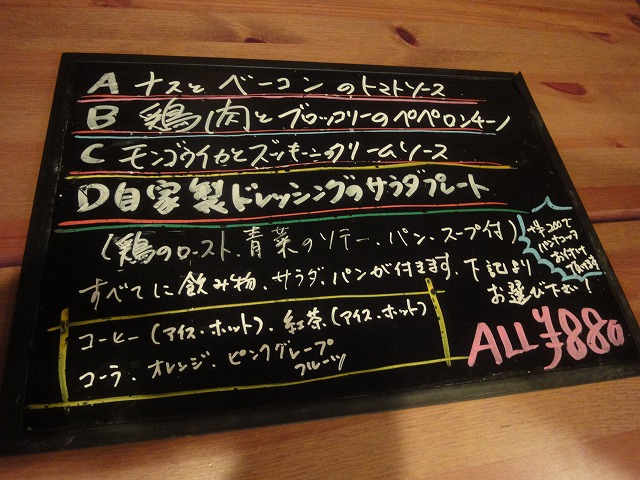 A ナスと ベーコン のトマトソース
B 鶏肉とブロッコリーのペペロンチーノ
C モンゴウイカとズッキーニのクリームソース
D 自家製ドレッシングのサラダプレート
(鶏のロースト、青菜のソテー、パン、スープ付)
+¥200で
お付け
すべてに飲み物、サラダ、パンが付きます。下記より
お選び下さい!
コーヒー(アイス・ホット)、紅茶(アイス・ホット)
コーラ、オレンジ、ピンクグレープ
フルーツ
ALL ¥880